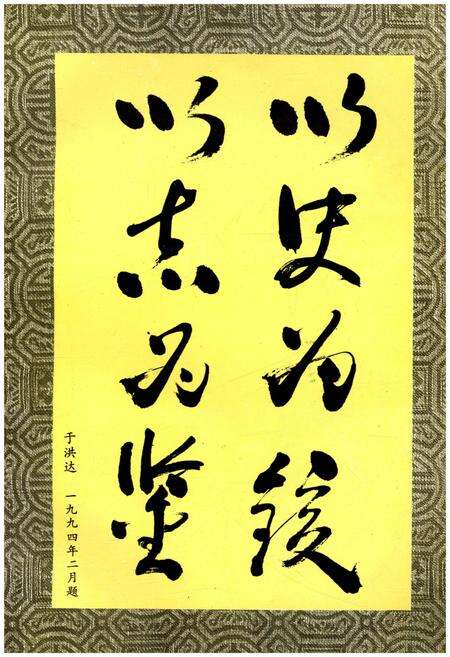 以史为镜
以志为鉴
于洪达 一九九四年二月题